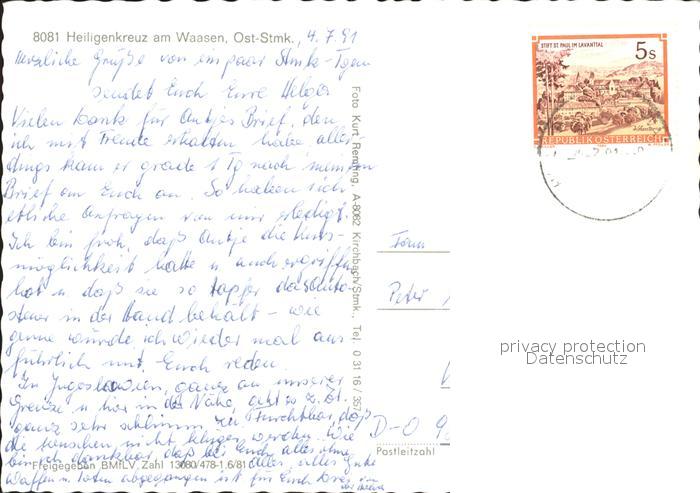 8081 Heiligenkreuz am Waasen, Ost-Stmk., 4.7.91
Herzliche Grüße von ein paar Stmk-Tgen
sendet Euch Eure Helga
Vielen Dank für Antjes Brief, den
ich mit Freude erhalten habe aller-
dings kam er grade 1 Tg nach meinem
Brief an Euch an. So haben sich
etliche Anfragen von mir erledigt.
Ich bin froh, daß Antje die Kurs-
möglichkeit hatte u auch ergriffen
hat u daß sie so tapfer das Auto-
steuer in der Hand behält - wie
gerne würde ich wieder mal aus-
führlich mit Euch reden.
In Jugoslawien, ganz an unserer
Grenze u hier in der Nähe, geht es z.Zt.
ganz sehr schlimm zu. Furchtbar, daß
die Menschen nicht klüger werden. Wie
bin ich dankbar, daß bei Euch alles ohne
Waffen u Toten abgegangen ist
Freigegeben BMfLV, Zahl 13080/478-1.6/81
Foto Kurt Remling, A-8082 Kirchbach/Stmk., Tel. 0 31 16 / 357
STIFT ST. PAUL IM LAVANTTAL
5s
REPUBLIK ÖSTERREICH
Fam
Peter
D-O 9
Postleitzahl
privacy protection
Datenschutz